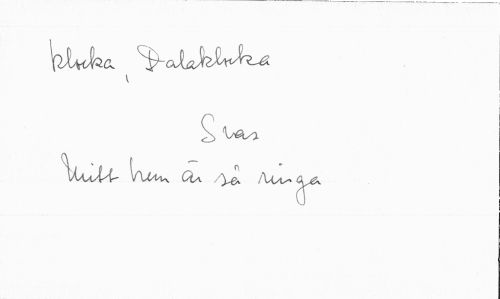 klocka, Dalaklocka
Svas
Mitt hem är så ringa